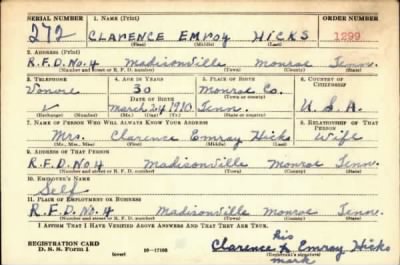 SERIAL NUMBER 1. NAME (Print) ORDER NUMBER
272 CLARENCE EMROY HICKS 1299
(First) (Middle) (Last)
2. ADDRESS (Print)
R.F.D. No. 4 Madisonville Monroe Tenn.
(Number and street or R. F. D. number) (Town) (County) (State)
3. TELEPHONE 4. AGE IN YEARS 5. PLACE OF BIRTH 6. COUNTRY OF CITIZENSHIP
Vonore 30 Monroe Co.
DATE OF BIRTH
March 24 1910 Tenn. U.S.A.
(Exchange) (Number) (Mo.) (Day) (Yr.) (State or country)
7. NAME OF PERSON WHO WILL ALWAYS KNOW YOUR ADDRESS 8. RELATIONSHIP OF THAT PERSON
Mrs. Clarence Emroy Hicks Wife
(Mr., Mrs., Miss) (First) (Middle) (Last)
9. ADDRESS OF THAT PERSON
R.F.D. No. 4 Madisonville Monroe Tenn.
(Number and street or R. F. D. number) (Town) (County) (State)
10. EMPLOYER'S NAME
Self
11. PLACE OF EMPLOYMENT OR BUSINESS
R.F.D. No. 4 Madisonville Monroe Tenn.
(Number and street or R. F. D. number) (Town) (County) (State)
I AFFIRM THAT I HAVE VERIFIED ABOVE ANSWERS AND THAT THEY ARE TRUE.
his
REGISTRATION CARD Clarence X Emroy Hicks
D. S. S. Form 1 (over) 16-17105 (Registrant's signature)
mark